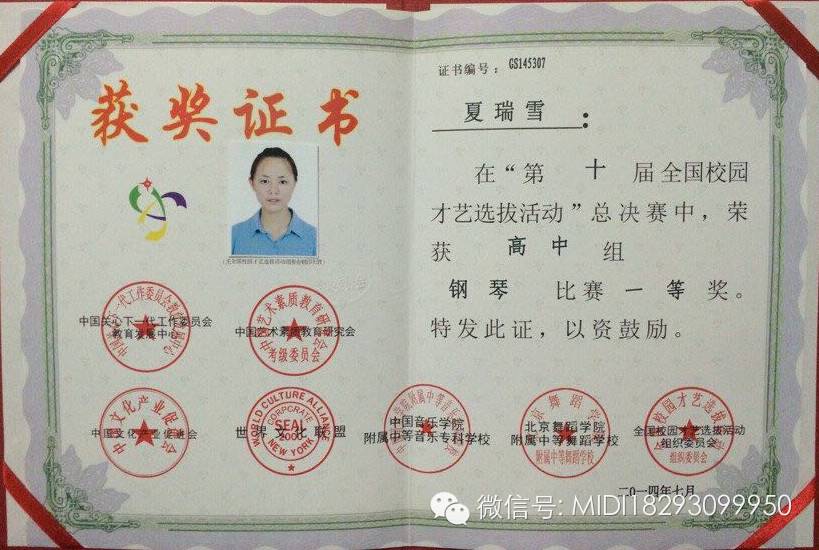 获奖证书
中国关心下一代工作委员会
教育发展中心
中国艺术素质教育研究会
考级委员会
中国文化产业促进会
世界文化联盟
WORLD CULTURE ALLIANCE
CORPCRATE
SEAL
2000
NEW YORK
证书编号：GS145307
夏瑞雪：
在“第十届全国校园
才艺选拔活动”总决赛中，荣
获高中组
钢琴比赛一等奖。
特发此证，以资鼓励。
中国音乐学院
附属中等音乐专科学校
北京舞蹈学院
附属中等舞蹈学校
附属中等舞蹈学校
全国校园才艺选拔活动
组织委员会
组织委员会
二〇一四年七月
微信号: MIDI18293099950